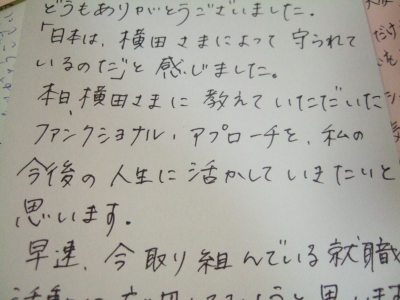 どうもありがとうございました.
「日本は、横田さまによって守られて
いるのだ」と感じました。
本日、横田さまに教えていただいた
ファンクショナル・アプローチを、私の
今後の人生に活かしていきたいと
思います。
早速、今取り組んでいる就職